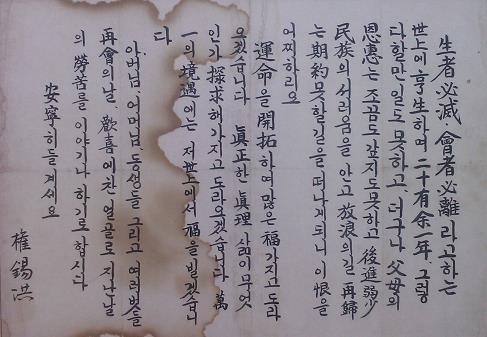 生者必滅 會者必離 라고하는
世上에 亨生하여 二十有余年, 그렇
다할만일도 못하고 더구나 父母의
恩惠는 조곰도 갚지도못하고 後進弱少
民族의 서러움을 안고 放浪의길 再歸
는 期約못할길을 떠나게되니 이 恨을
어찌하리오
運命을 開拓하여 많은 福 가지고 도라
오겠습니다 眞正한 眞理 삶이무엇
인가 探求허가지고 도라오겠습니다 萬
一의 境遇에는 저世上에서 福을 빌겠습니
다
아버님, 어머님, 동생들 그리고 여러벗들
再會의날, 歡喜에찬 얼골로 지난날
의 勞苦을 이야기나 하기로 합시다
安寧히들 계세요
權錫洪